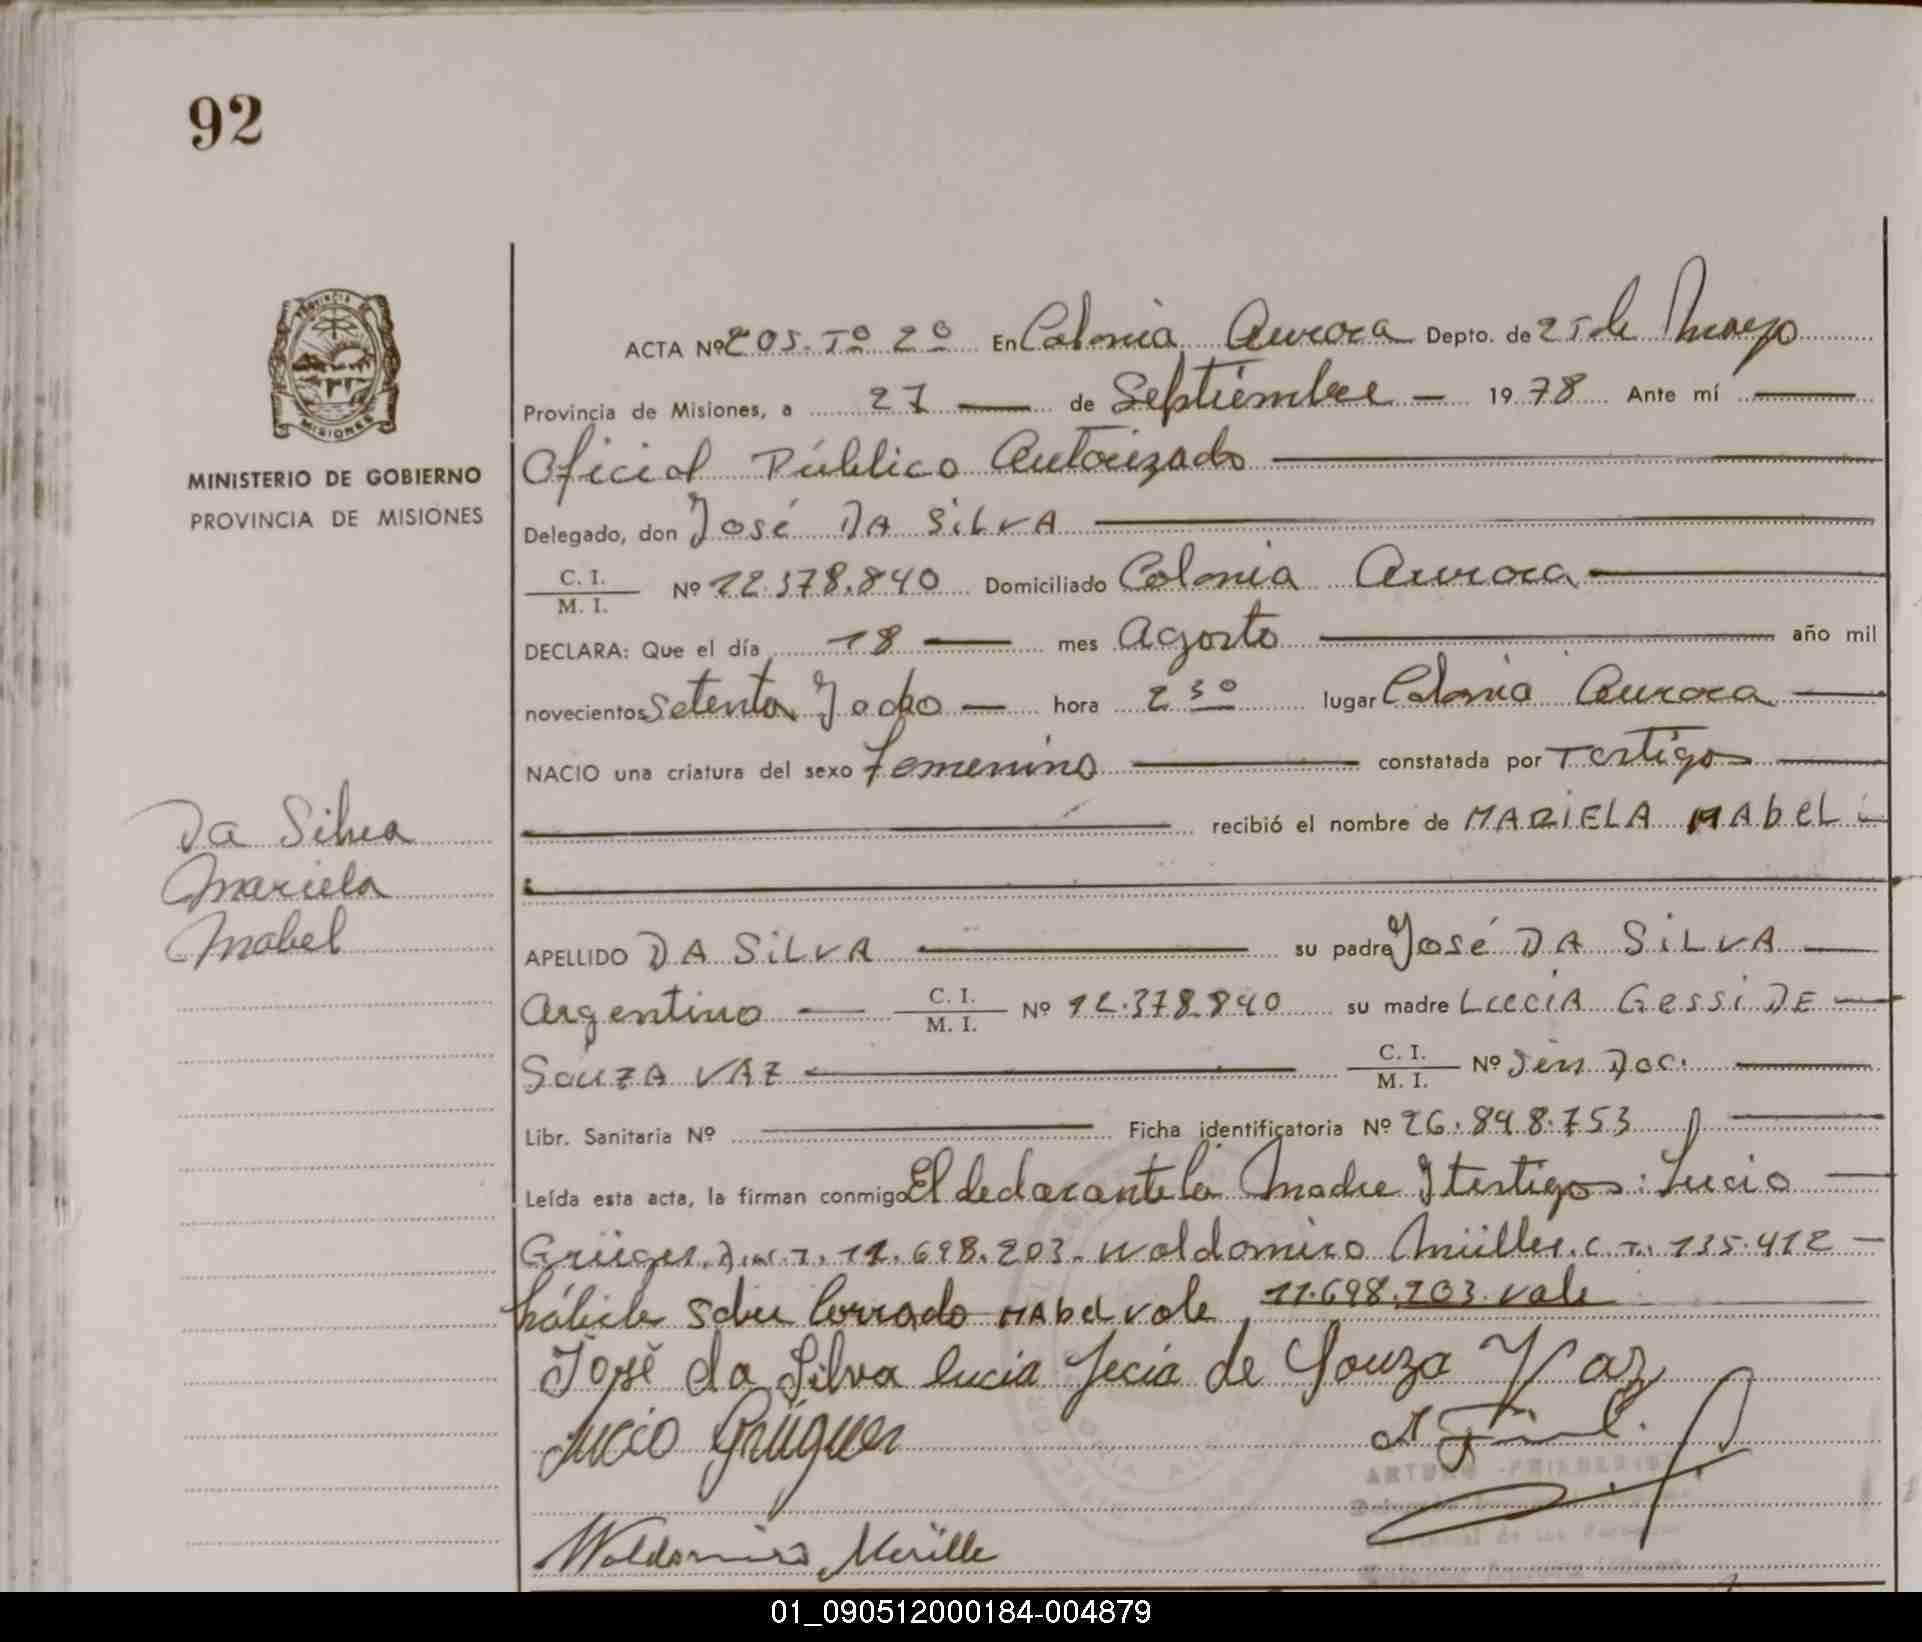 92
PROVINCIA
MISIONES
MINISTERIO DE GOBIERNO
PROVINCIA DE MISIONES
Da Silva
Mariela
Mabel
ACTA Nº 205. Tº 2º En Colonia Aurora Depto. de 25 de Mayo
Provincia de Misiones, a 27 — de Septiembre — 1978 Ante mí —
Oficial Público Autorizado —
Delegado, don José DA SiLVA —
C. I. / M. I. Nº 12.378.840 Domiciliado Colonia Aurora —
DECLARA: Que el día 18 — mes Agosto — año mil
novecientos setenta y ocho — hora 23º lugar Colonia Aurora —
NACIO una criatura del sexo femenino — constatada por Testigos —
— recibió el nombre de MARiELA MAbeL —
APELLIDO DA SiLVA — su padre José DA SiLVA —
Argentino — C. I. / M. I. Nº 12.378.840 su madre LuciA Gessi DE —
SouZA VAZ — C. I. / M. I. Nº Sin Doc. —
Libr. Sanitaria Nº — Ficha identificatoria Nº 26.848.753 —
Leída esta acta, la firman conmigo El declarante la Madre y testigos: Lucio —
Grüger. D.N.I. 11.698.203. Waldomiro Müller. C.I. 135.412 —
hábiles sobre borrado MAbeL vale 11.698.203. vale
José da Silva lucia Jecia de Souza Vaz
Lucio Grüguer
ARTURO
Waldomiro Mürlle
01_090512000184-004879